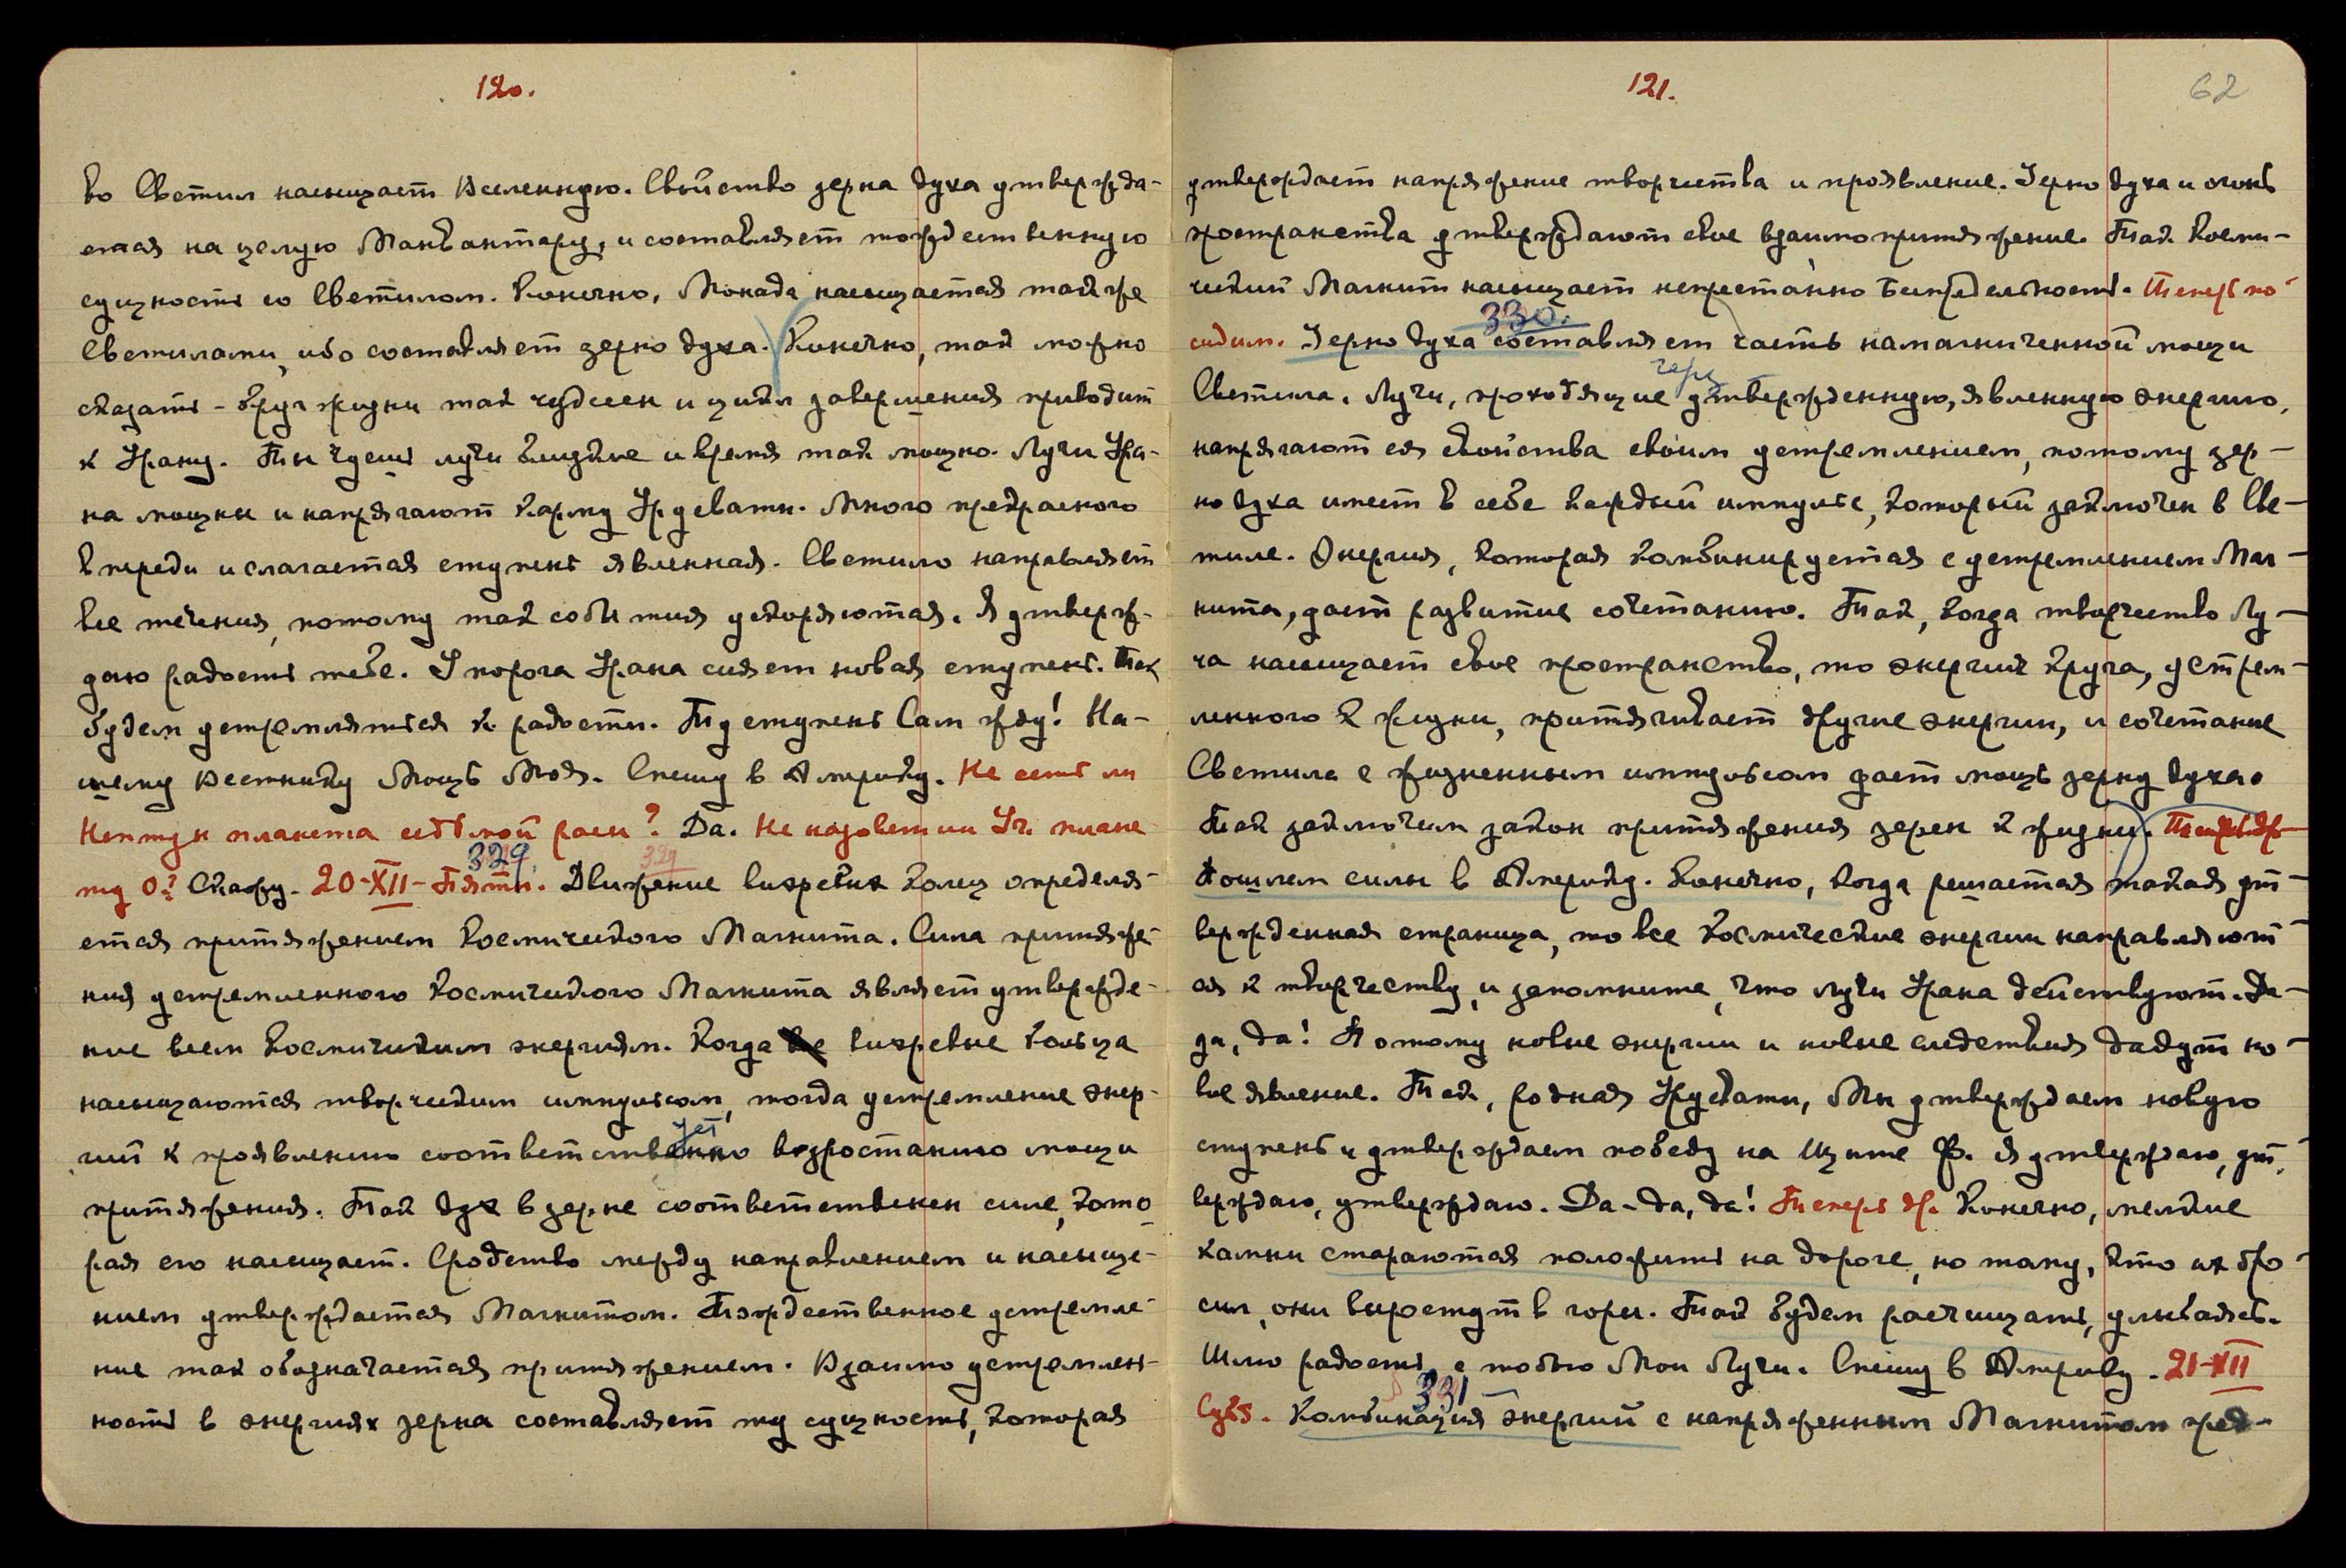 120.
во Светил насыщает Вселенную. Свойство зерна духа утвержда-
ется на целую Манвантару, и составляет тождественную
сущность со Светилом. Конечно, Монада насыщается также
Светилами, ибо составляет зерно духа. Конечно, так можно
сказать - круг жизни так чудесен и цикл завершения приводит
к Урану. Ты чуешь лучи близкие и время так мощно. Лучи Ура-
на мощны и напрягают Карму Урусвати. Много прекрасного
впереди и слагается ступень явленная. Светило направляет
все течения, потому так события ускоряются. Я утверж-
даю радость тебе. У порога Урана сияет новая ступень. Так
будем устремляться к радости. Ту ступень Сам жду! На-
шему Вестнику Мощь Моя. Спешу в Америку. Не есть ли
Нептун планета седьмой расы? Да. Не назовет ли Уч. плане
ту О? Скажу. 20-XII-Пятн. Движение вихревых колец определя-
329.
329
ется притяжением Космического Магнита. Сила притяже-
ния устремленного Космического Магнита являет утвержде-
ние всем Космическим энергиям. Когда все вихревые кольца
насыщаются творческим импульсом, тогда устремление энер-
гий к проявлению соответственно возростанию мощи
ует
притяжения. Так дух в зерне соответственен силе, кото
рая его насыщает. Сродство между направлением и насыще-
нием утверждается Магнитом. Тождественное устремле-
ние так обозначается притяжением. Взаимо устремлен-
ность в энергиях зерна составляет ту сущность, которая
121.
62
утверждает напряжение творчества и проявление. Зерно духа и огонь
пространства утверждают свое взаимопритяжение. Так Косми-
ческий Магнит насыщает непрестанно Беспредельность. Теперь по-
сидим. Зерно духа составляет часть намагниченной мощи
330.
Светила. Лучи, проходящие утвержденную, явленную энергию,
через
напрягают ея свойства своим устремлением, потому зер-
но духа имеет в себе каждый импульс, который заключен в Све-
тиле. Энергия, которая комбинируется с устремлением Маг-
нита, дает развитие сочетанию. Так, когда творчество Лу-
ча насыщает свое пространство, то энергия круга, устрем-
ленного к жизни, притягивает другие энергии, и сочетание
Светила с жизненным импульсом дает мощь зерну духа.
Так заключим закон притяжения зерен к жизни.
Пошлем силы в Америку. Конечно, когда решается такая ут-
вержденная страница, то все космические энергии направляют
ся к творчеству, и запомните, что лучи Урана действуют. Да-
да, да! Потому новые энергии и новые следствия дадут но-
вое явление. Так, родная Урусвати, Мы утверждаем новую
ступень и утверждаем победу на Щите Ф. Я утверждаю, ут-
верждаю, утверждаю. Да-да, да! Теперь др. Конечно, мелкие
камни стараются положить на дороге, но тому, кто их бро-
сил, они выростут в горы. Так будем расчищать, улыбаясь.
Шлю радость, с тобою Мои Лучи. Спешу в Америку. 21-XII
Субб. Комбинация энергий с напряженным Магнитом пред-
331